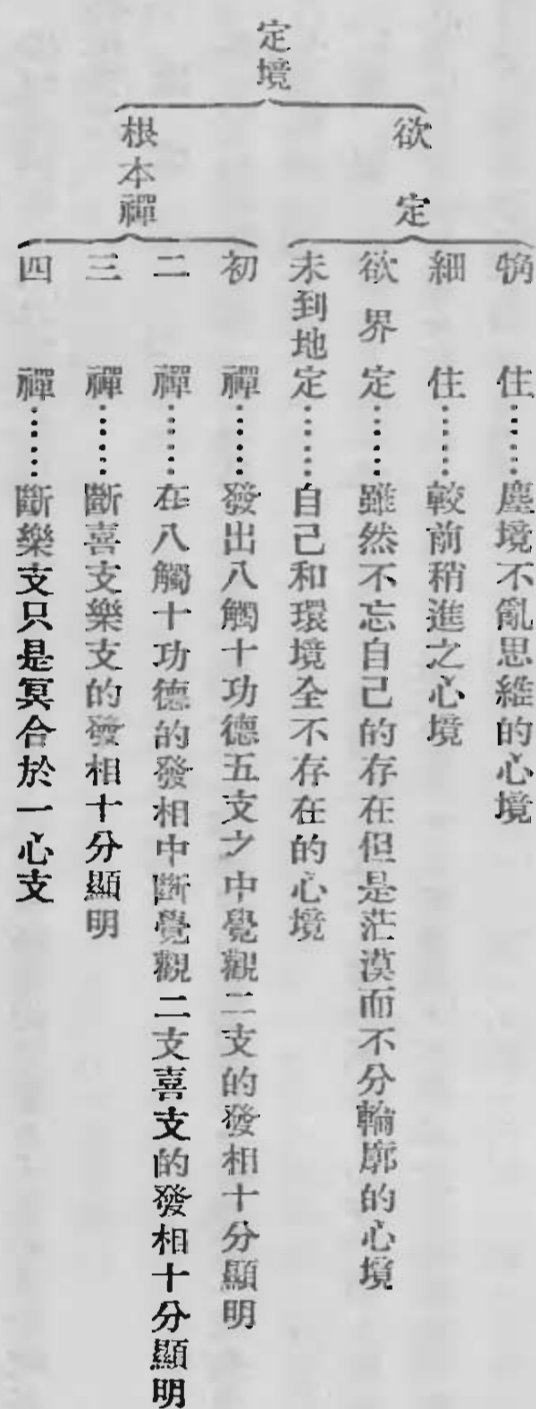 定境
欲定
觕住……塵境不亂思維的心境
細住……較前稍進之心境
欲界定……雖然不忘自己的存在但是茫漠而不分輪廓的心境
未到地定……自己和環境全不存在的心境
根本禪
初禪……發出八觸十功德五支之中覺觀二支的發相十分顯明
二禪……在八觸十功德的發相中斷覺觀二支喜支的發相十分顯明
三禪……斷喜支樂支的發相十分顯明
四禪……斷樂支只是冥合於一心支